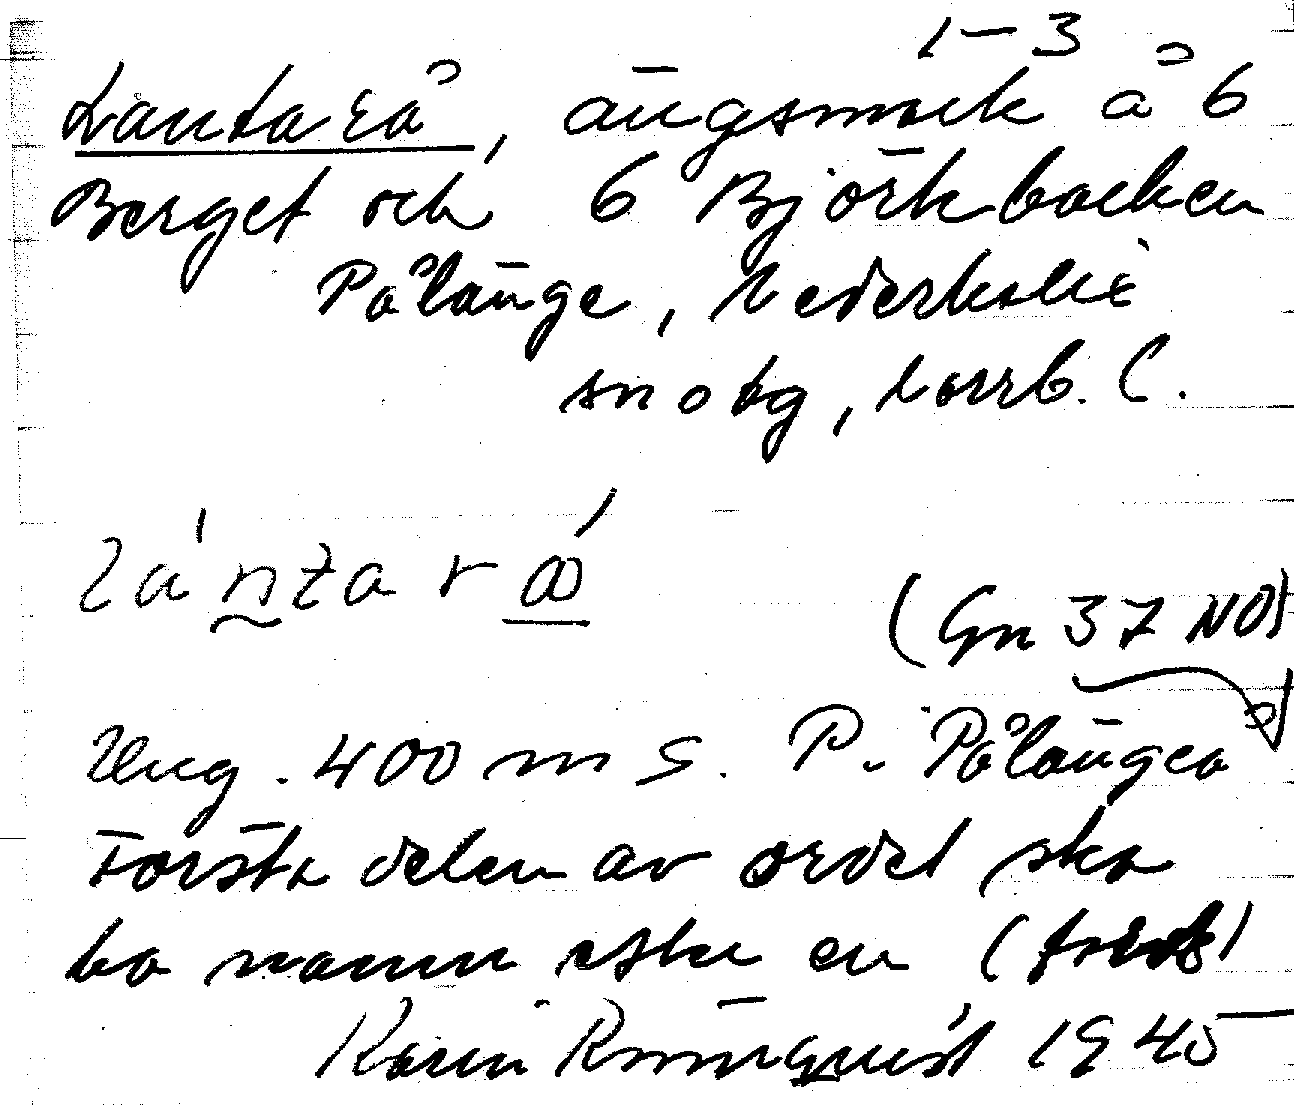 1–3
Lantarå, ängsmark å 6
Berget och 6 Björkbacken
Pålänge, Nederkalix
sn o tg, Norrb. l.
(Gn 37 NO)
Ung. 400 m S. P. i Pålängeå
Första delen av ordet ska
ha namn efter en
Karin Rönnquist 1945